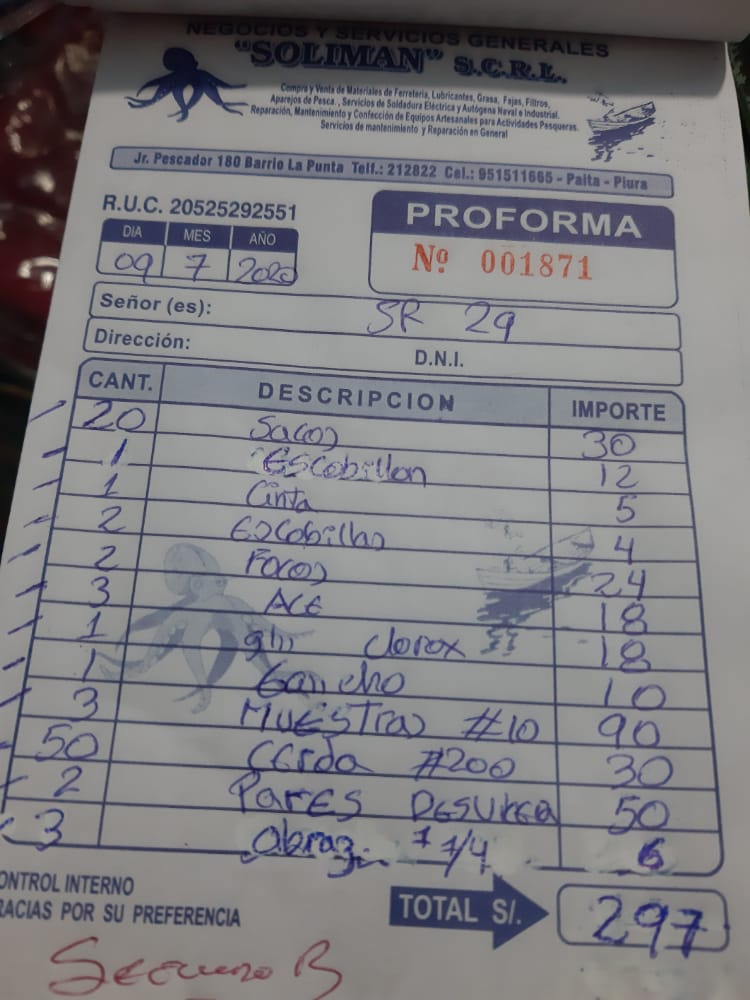 NEGOCIOS Y SERVICIOS GENERALES
"SOLIMAN" S.C.R.L.
Compra y Venta de Materiales de Ferretería, Lubricantes, Grasa, Fajas, Filtros,
Aparejos de Pesca., Servicios de Soldadura Eléctrica y Autógena Naval e Industrial.
Reparación, Mantenimiento y Confección de Equipos Artesanales para Actividades Pesqueras.
Servicios de mantenimiento y Reparación en General
Jr. Pescador 180 Barrio La Punta Telf.: 212822 Cel.: 951511665 - Paita - Piura
R.U.C. 20525292551
PROFORMA
Nº 001871
DIA MES AÑO
09 7 2020
Señor (es): SR 29
Dirección: D.N.I.
CANT. DESCRIPCION IMPORTE
20 Sacos 30
1 Escobillon 12
1 Cinta 5
2 Escobillas 4
2 Focos 24
3 ACE 18
1 gln clorox 18
1 Gancho 10
3 MUESTRAS #10 90
50 CERda #200 30
2 PARES 50
3 abraz. 1 1/4 6
CONTROL INTERNO
GRACIAS POR SU PREFERENCIA
TOTAL S/. 297